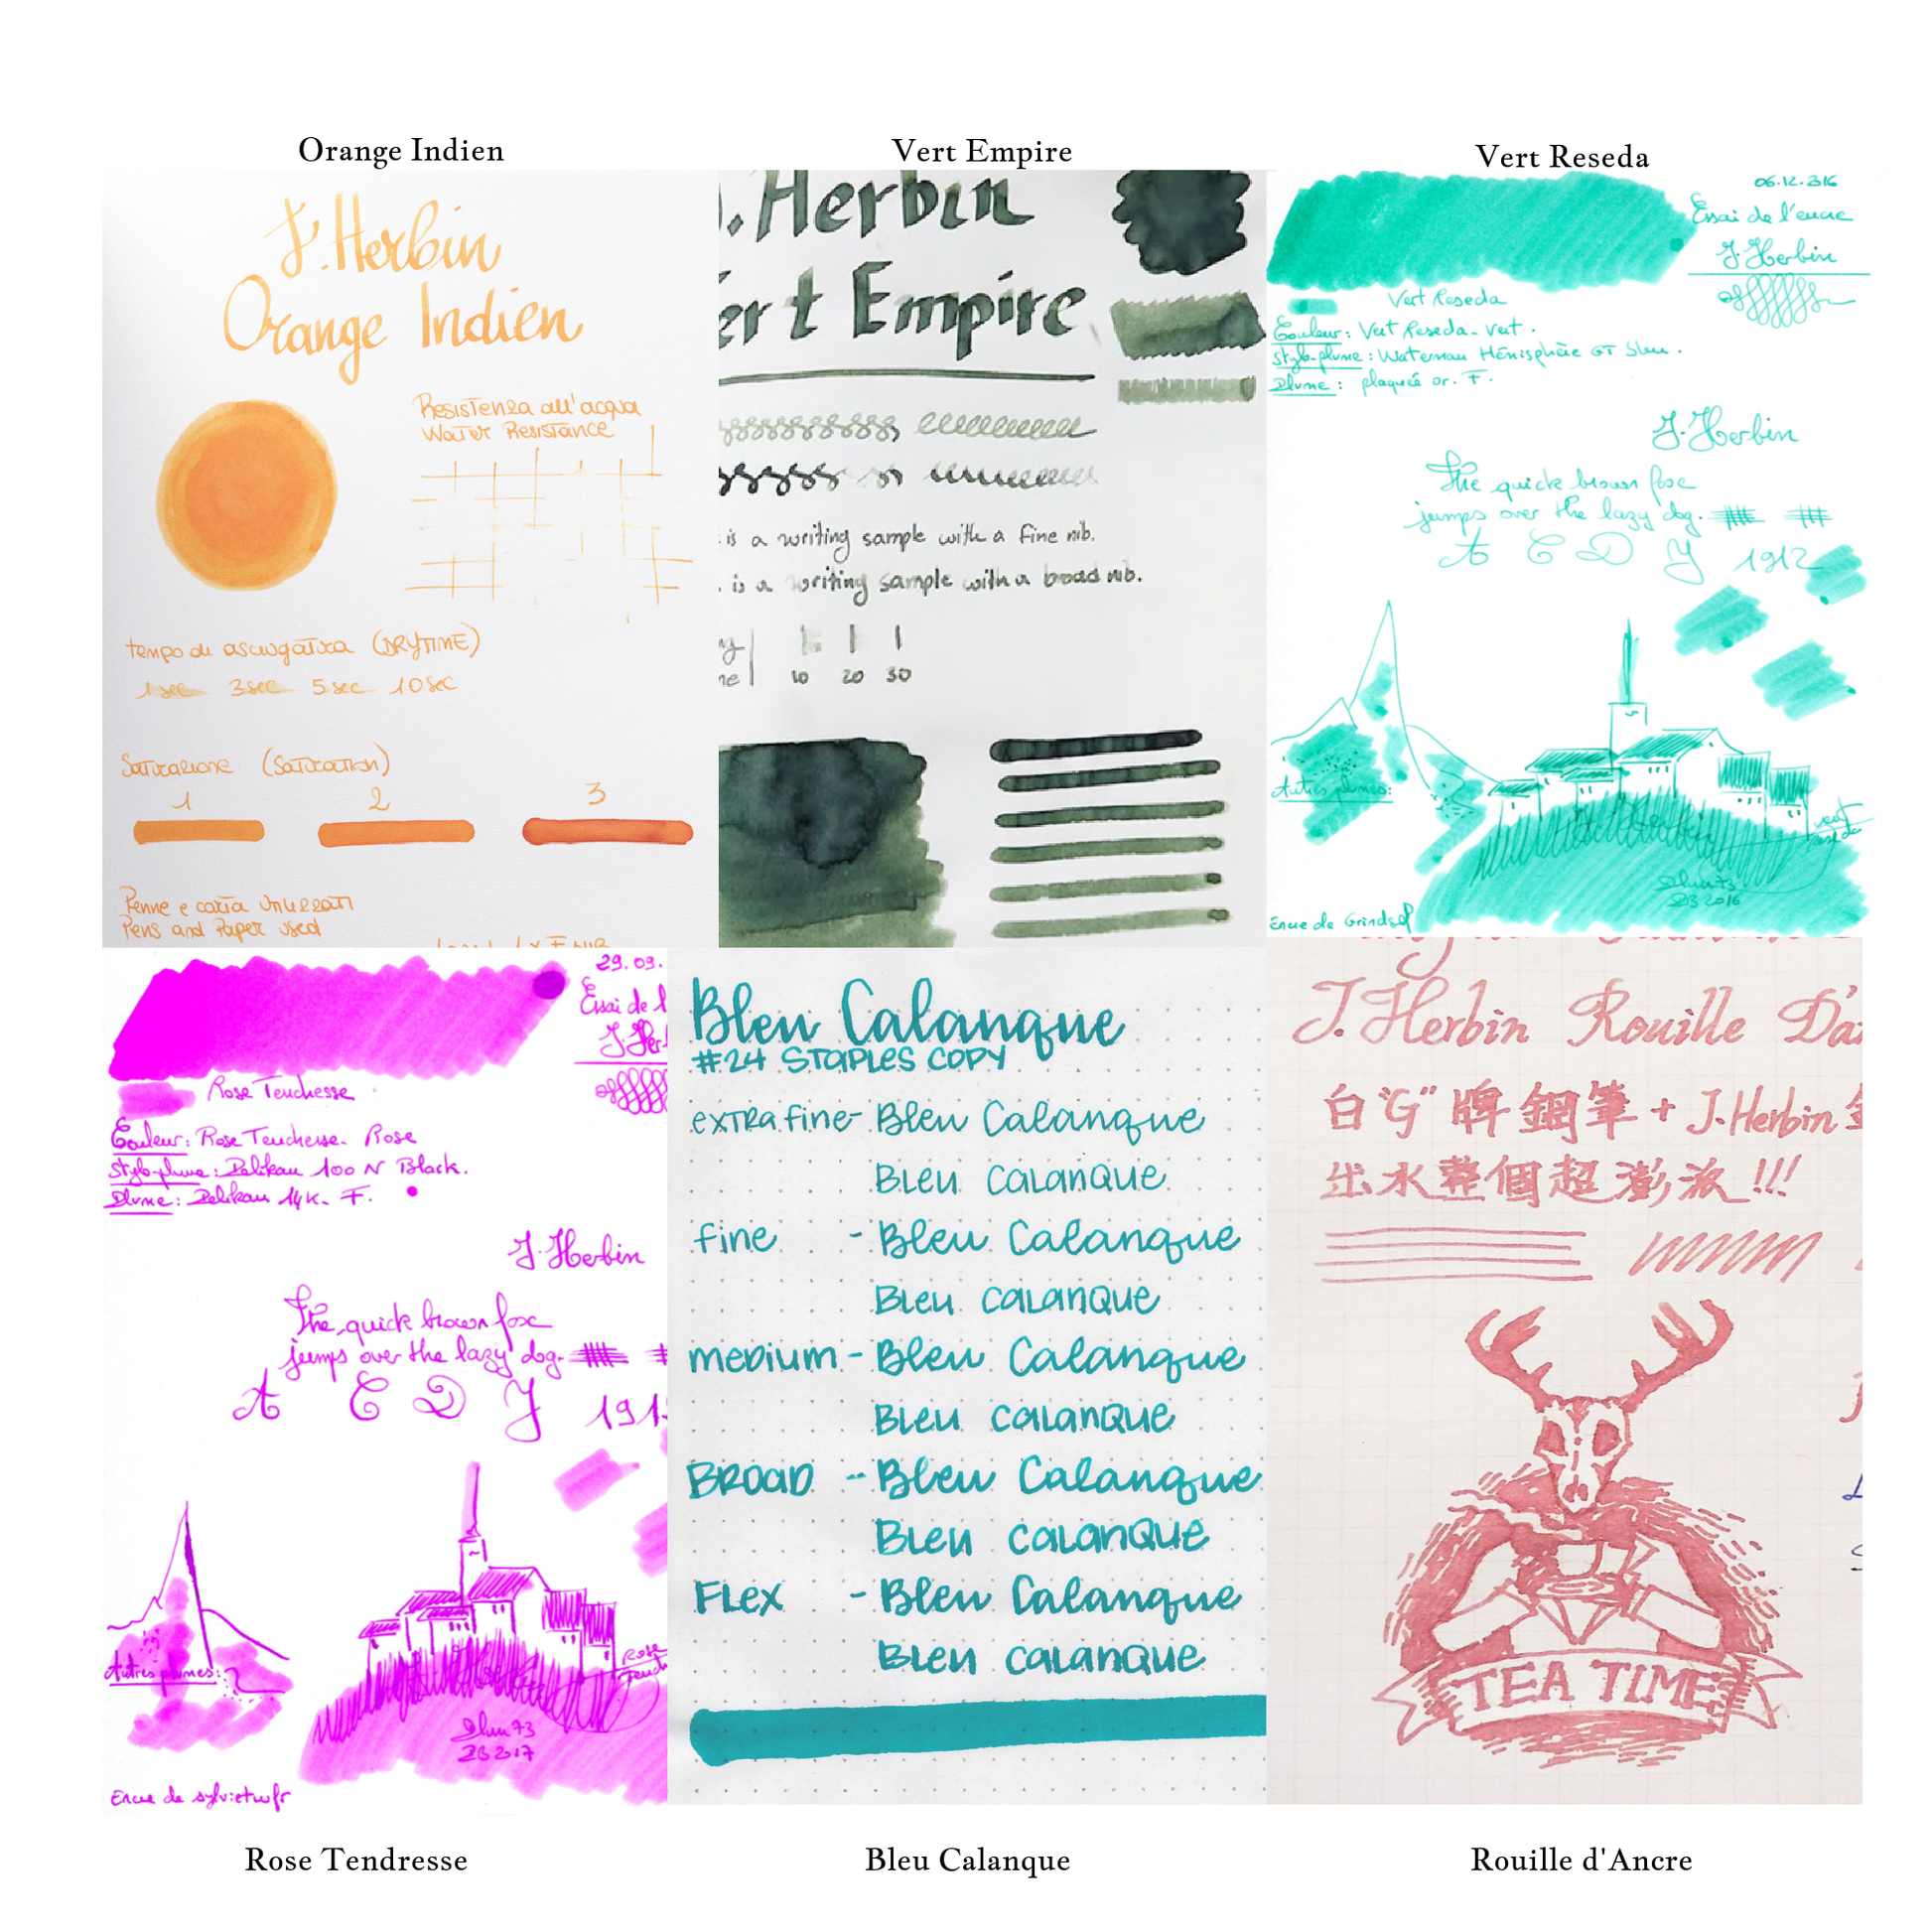 Orange Indien
J. Herbin
Orange Indien
Resistenza all'acqua
Water Resistance
tempo di asciugatura (DRYTIME)
1 sec 3 sec 5 sec 10 sec
Saturazione (Saturation)
1 2 3
Penne e carta utilizzati
Pens and Paper used
Vert Empire
J. Herbin
ert Empire
is a writing sample with a fine nib.
is a writing sample with a broad nib.
10 20 30
Vert Reseda
06.12.2016
Essai de l'encre
J. Herbin
Vert Reseda
Couleur: Vert Reseda - Vert.
Stylo-plume: Waterman Hémisphère GT bleu.
Plume: plaquée or. F.
J. Herbin
The quick brown fox
jumps over the lazy dog.
A C D J 1912
Autres plumes:
Encre de Grindsel
29.09.
Essai de l
J. Her
Rose Tendresse
Couleur: Rose Tendresse - Rose
Stylo-plume: Pelikan 100 N Black.
Plume: Pelikan 14k. F.
J. Herbin
The quick brown fox
jumps over the lazy dog.
A C D J 191
Autres plumes:
2017
Encre de sylvietwfr
Rose Tendresse
Bleu Calanque
#24 STAPLES COPY
extra fine - Bleu Calanque
Bleu Calanque
fine - Bleu Calanque
Bleu Calanque
medium - Bleu Calanque
Bleu Calanque
BROAD -- Bleu Calanque
Bleu Calanque
FLex - Bleu Calanque
Bleu Calanque
Bleu Calanque
J. Herbin Rouille D'a
白"G"牌鋼筆 + J. Herbin
出水整個超澎派!!!
TEA TIME
Rouille d'Ancre